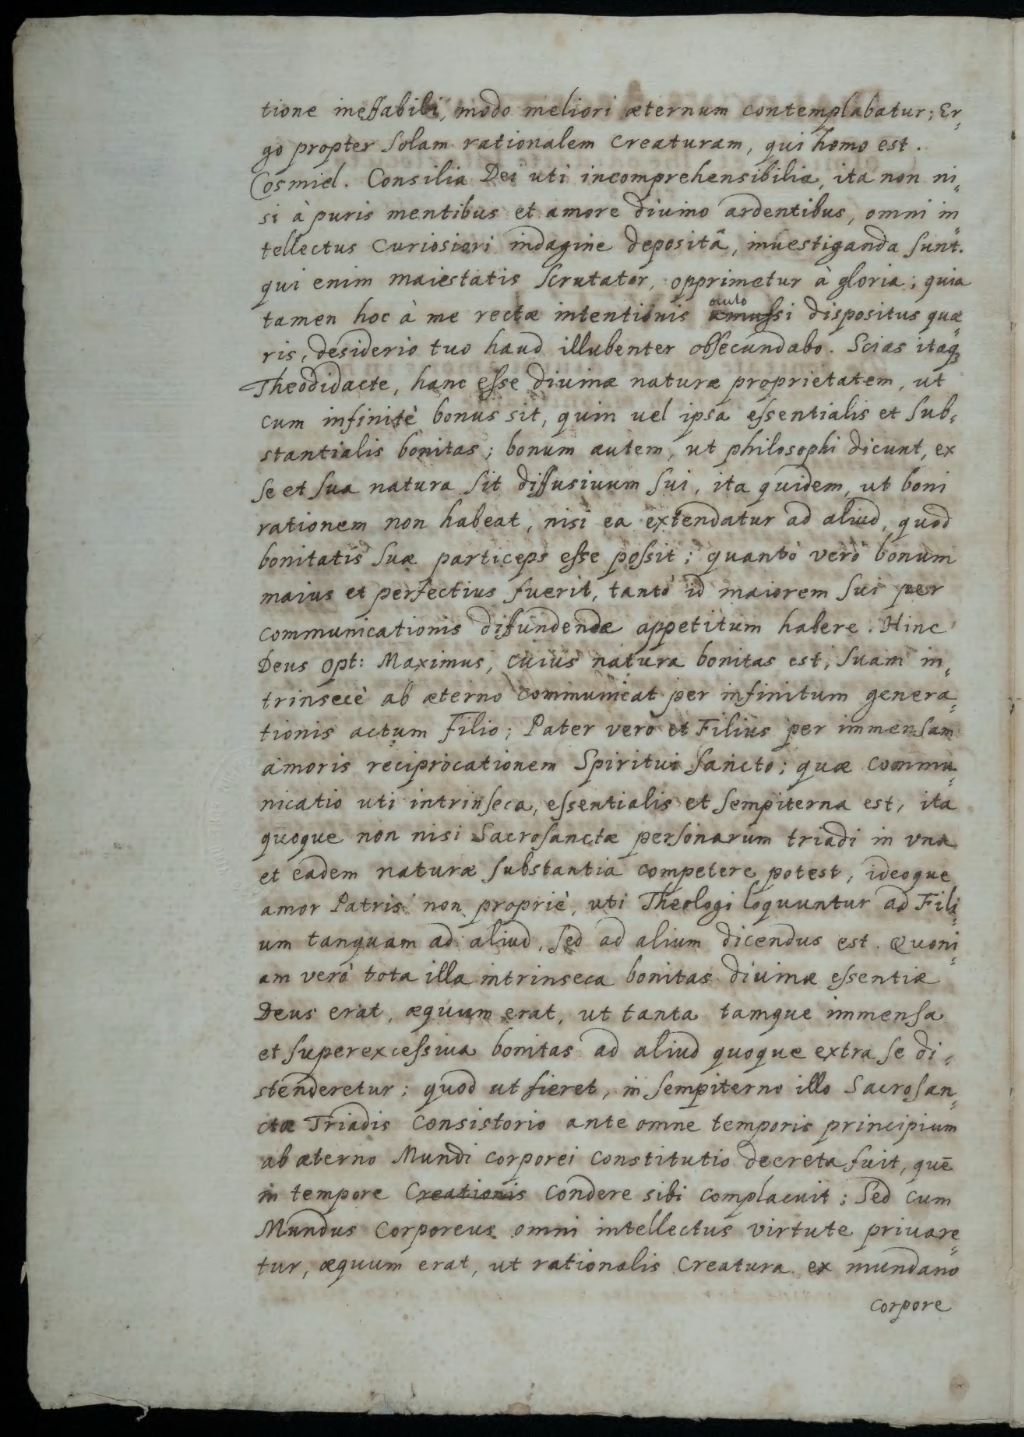 tione ineffabili, modo meliori æternum contemplabatur; Er-
go propter solam rationalem creaturam, qui homo est.
Cosmiel. Consilia Dei uti incomprehensibilia, ita non ni-
si à puris mentibus et amore diuino ardentibus, omni in-
tellectus curiosiori indagine depositâ, inuestiganda sunt.
qui enim maiestatis scrutator, opprimetur à gloria; quia
tamen hoc à me rectæ intentionis amussi dispositus quæ-
ris, desiderio tuo haud illubenter obsecundabo. Scias itaq3
Theodidacte, hanc esse diuinæ naturæ proprietatem, ut
cum infinitè bonus sit, quin uel ipsa essentialis et sub-
stantialis bonitas; bonum autem, ut philosophi dicunt, ex
se et sua natura sit diffusiuum sui, ita quidem, ut boni
rationem non habeat, nisi ea extendatur ad aliud, quod
bonitatis suæ particeps esse possit; quantò verò bonum
maius et perfectius fuerit, tantò id maiorem sui per
communicationis difundendæ appetitum habere. Hinc
Deus opt: Maximus, cuius natura bonitas est, suam in-
trinsecè ab æterno communicat per infinitum genera-
tionis actum filio; Pater vero et Filius per immensam
amoris reciprocationem Spiritui sancto; quæ commu-
nicatio uti intrinseca, essentialis et sempiterna est, ita
quoque non nisi Sacrosanctæ personarum triadi in vna
et eadem naturæ substantia competere potest, ideoque
amor Patris non propriè, uti Theologi loquuntur ad Fili-
um tanquam ad aliud, sed ad alium dicendus est. Quoni-
am verò tota illa intrinseca bonitas diuinæ essentiæ
Deus erat, æquum erat, ut tanta tamque immensa
et superexcessiua bonitas ad aliud quoque extra se di-
stenderetur; quod ut fieret, in sempiterno illo Sacrosan-
ctæ Triadis Consistorio ante omne temporis principium
ab æterno Mundi corporei constitutio decreta fuit, quē
in tempore Creationis condere sibi complacuit; Sed cum
Mundus Corporeus omni intellectus virtute priuare-
tur, æquum erat, ut rationalis Creatura ex mundano
corpore